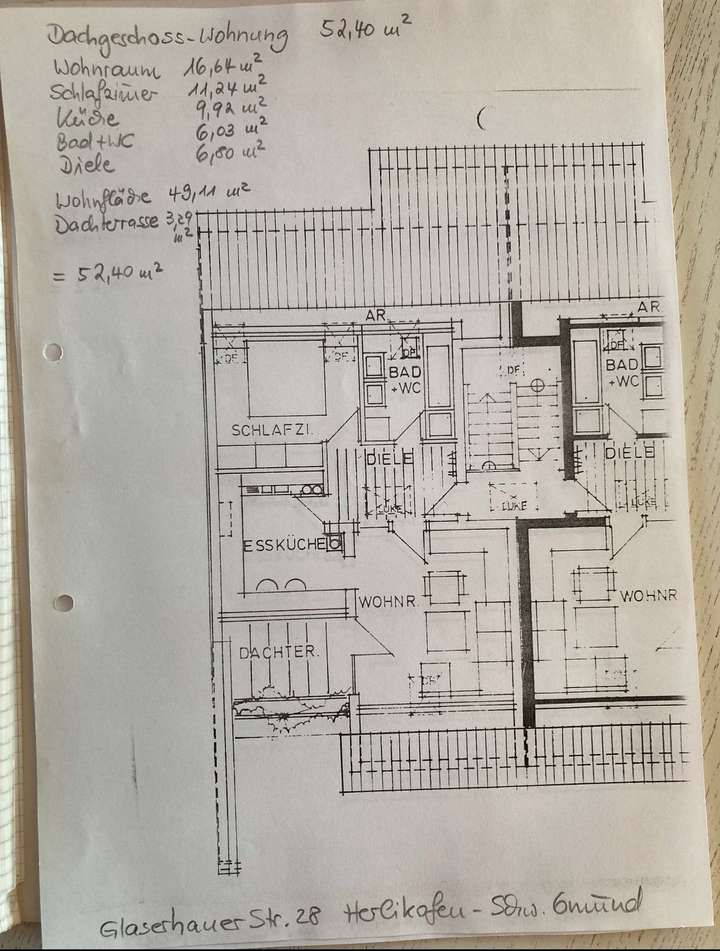 Dachgeschoss-Wohnung 52,40 m²
Wohnraum 16,64 m²
Schlafzimmer 11,24 m²
Küche 9,92 m²
Bad+WC 6,03 m²
Diele 6,80 m²
Wohnfläche 49,11 m²
Dachterrasse 3,29
m²
= 52,40 m²
AR.
AR.
DF
DF
DF
DF
DF
BAD
+WC
BAD
+WC
SCHLAFZI.
DIELE
DIELE
LUKE
LUKE
LUKE
ESSKÜCHE
WOHNR.
WOHNR
DACHTER.
DF
Glaserhauer Str. 28 Herlikofen - Schw. Gmünd